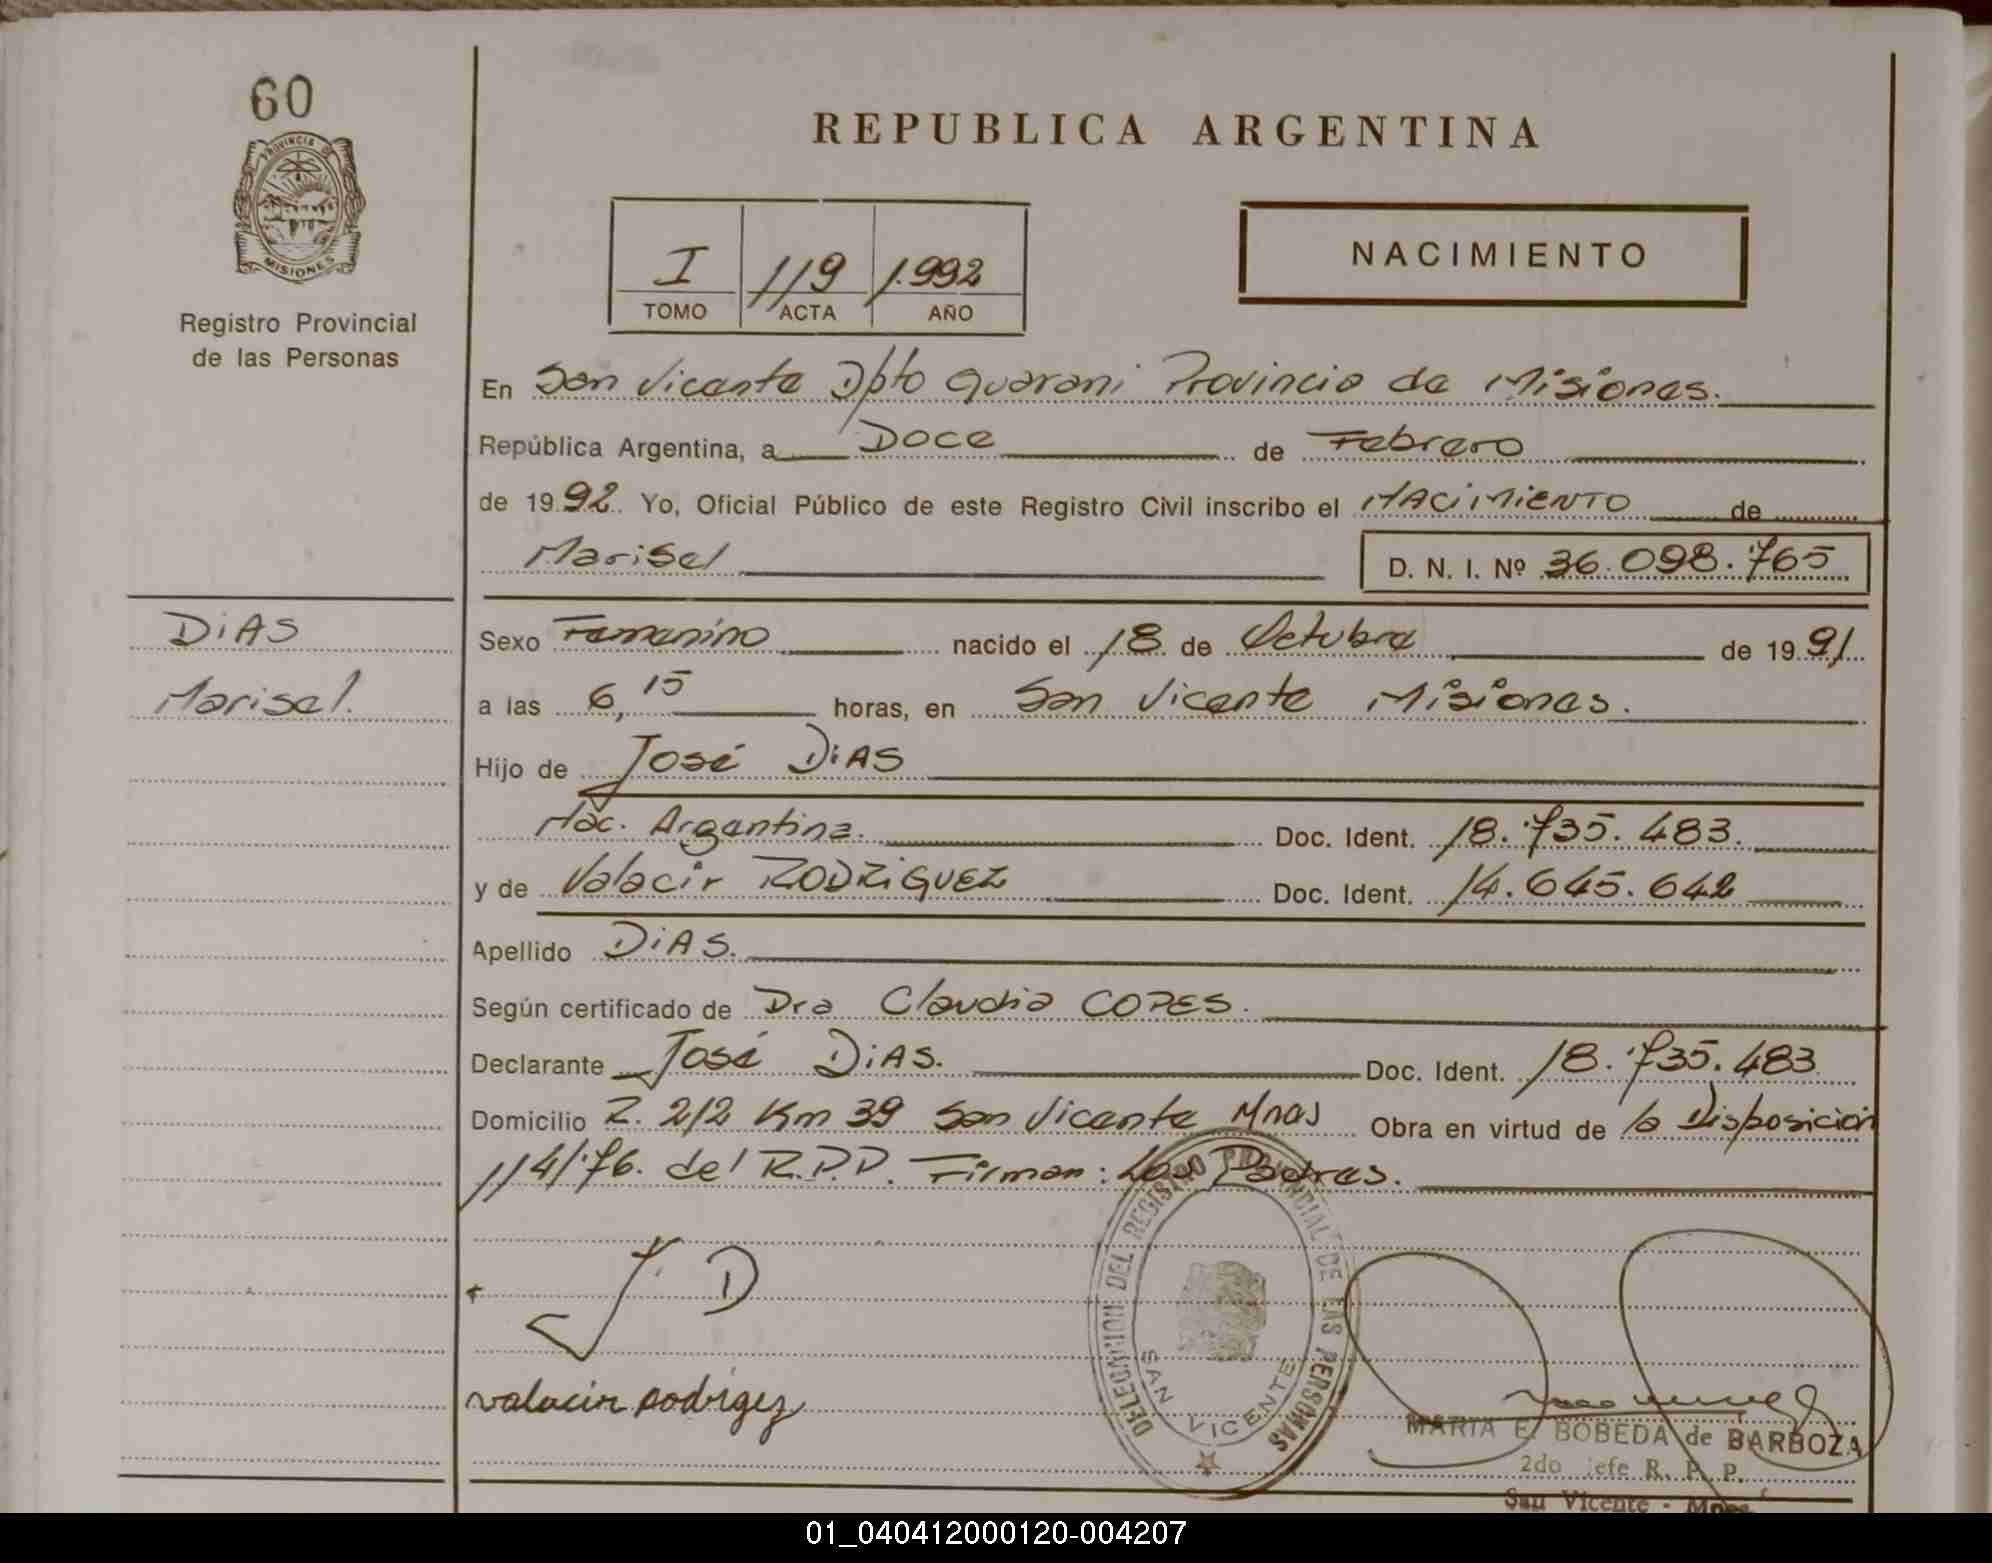 60
PROVINCIA DE
MISIONES
Registro Provincial
de las Personas
REPUBLICA ARGENTINA
I 119 1.992
TOMO ACTA AÑO
NACIMIENTO
En San Vicente Dpto Guarani Provincia de Misiones.
República Argentina, a Doce de Febrero
de 1992. Yo, Oficial Público de este Registro Civil inscribo el NACIMIENTO de
Marisel D. N. I. Nº 36.098.765
DiAS
Marisel.
Sexo Femenino nacido el 18 de Octubre de 1991
a las 6,15 horas, en San Vicente Misiones.
Hijo de José DiAS
Nac. Argentina. Doc. Ident. 18.735.483.
y de Valacir RODRiGUEZ Doc. Ident. 14.645.642
Apellido DiAS.
Según certificado de Dra Claudia COPES.
Declarante José DiAS. Doc. Ident. 18.735.483
Domicilio Z. 212 Km 39 San Vicente Mnes Obra en virtud de la Disposición
114/76. del R.P.P. Firman: Los Padres.
J. D
valacir Rodrigez
DELEGACION DEL REGISTRO PROVINCIAL DE LAS PERSONAS
SAN VICENTE
MARIA E. BOBEDA de BARBOZA
2do jefe R. P. P.
San Vicente - Mnes.
01_040412000120-004207